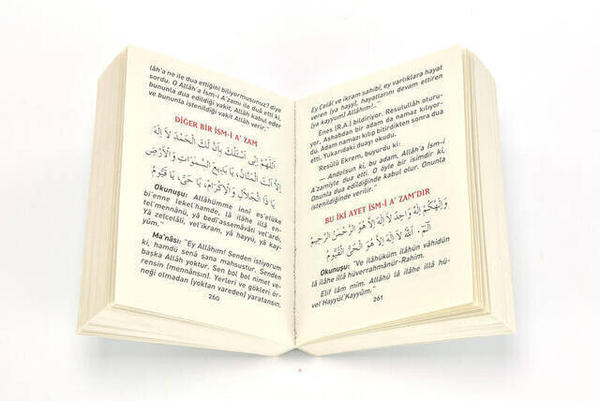 lâh'a ne ile dua ettiğini biliyormusunuz? diye
sordu. O Allâh'a İsm-i A'zamı ile dua etti ki,
bununla dua edildiği vakit, Allâh kabul eder
ve bununla istenildiği vakit Allâh verir."
DİĞER BİR İSM-İ A' ZAM
اَللّٰهُمَّ اِنِّى اَسْئَلُكَ بِاَنَّ لَكَ الْحَمْدَ لَا اِلٰهَ
اِلَّا اَنْتَ الْمَنَّانُ، يَا بَدِيعَ السَّمٰوَاتِ وَالْاَرْضِ
يَا ذَا الْجَلَالِ وَالْاِكْرَامِ، يَا حَىُّ، يَا قَيُّومُ
Okunuşu: Allâhümme innî es'elüke
bi'enne lekel'hamde, lâ ilâhe illâ ente-
tel'mennânü, yâ bedî'assemâvâti vel'ardı,
Yâ zelcelâli, vel'ikram, yâ hayyü, yâ kay-
yûm."
Ma'nâsı: "Ey Allâhım! Senden istiyorum
ki, hamdü senâ sana mahsustur. Senden
başka Allâh yoktur. Sen bol bol nimet ve-
rensin (mennânsın). Yerleri ve gökleri ör-
neği olmadan (yoktan vareden) yaratansın.
260
Ey Celâl ve ikram sahibi, ey varlıklara hayat
veren (ya hayy), hayatlarını devam ettiren
(ya kayyum) Allâhım!.."
Enes (R.A.) bildiriyor: Resulullah oturu-
yordu. Ashabdan bir adam da namaz kılıyor-
du. Adam namazı kılıp bitirdikten sonra dua
etti. Yukarıdaki duayı okudu.
Resûlü Ekrem, buyurdu ki:
— Andolsun ki, bu adam, Allâh'a İsm-i
A'zamiyle dua etti. O öyle bir isimdir ki,
Onunla dua edildiğinde kabul olur. Onunla
istenildiğinde verilir."
BU İKİ AYET İSM-İ A' ZAM'DIR
وَاِلٰهُكُمْ اِلٰهٌ وَاحِدٌ لَا اِلٰهَ اِلَّا هُوَ الرَّحْمٰنُ الرَّحِيمُ
الٓمٓ اَللّٰهُ لَا اِلٰهَ اِلَّا هُوَ الْحَىُّ الْقَيُّومُ
Okunuşu: "Ve ilâhüküm ilâhün vâhidün
lâ ilâhe illâ hüverrahmânür-Rahim.
Elif lâm mîm. Allâhü lâ ilâhe illâ hü-
vel'Hayyül'Kayyûm."
261